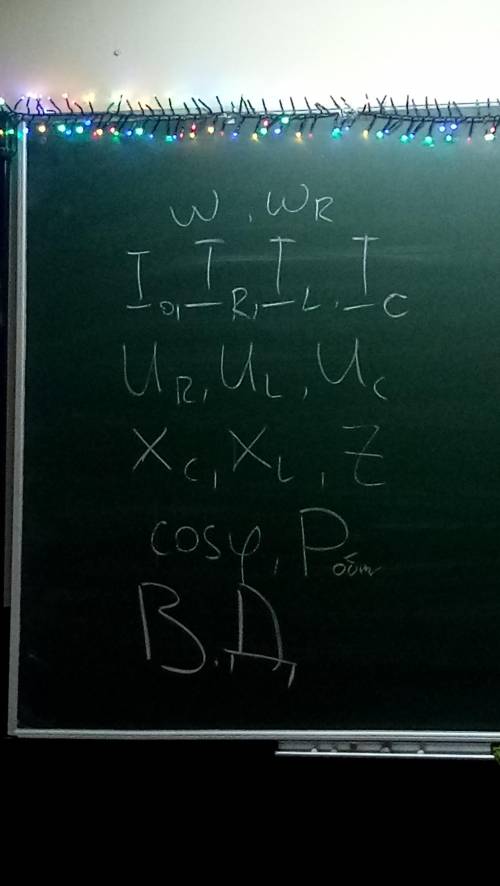 ω, ωR
I0, IR, IL, IC
UR, UL, UC
XC, XL, Z
cosφ, Pобщ
В.Д,